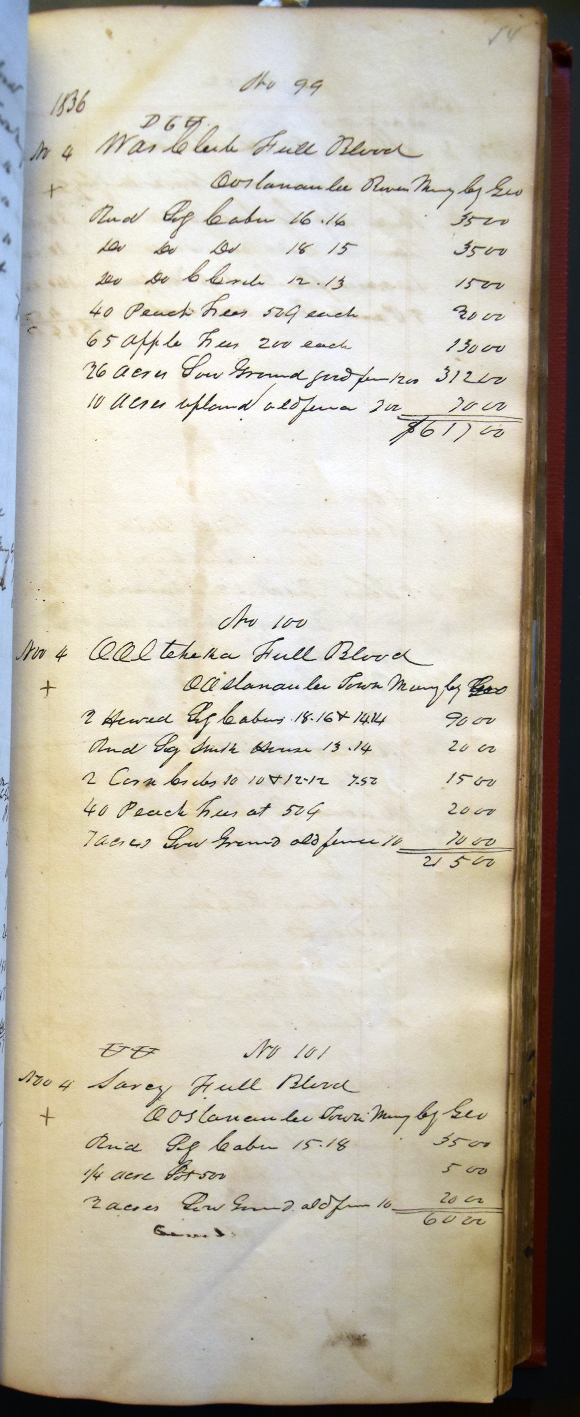 54
No 99
1836
D G G
No 4 Was Clerk Full Blood
+ Oostanaulee River Murry Cy Geo
Rnd Log Cabin 16.16 35 00
Do Do Do 18 15 35 00
Do Do C Crib 12.13 15 00
40 Peach Trees 50¢ each 20 00
65 Apple Trees 200 each 130 00
26 Acres Low Ground good fen 1200 312 00
10 Acres upland old fence 700 70 00
$617 00
No 100
Nov 4 Full Blood
+ Oostanaulee Town Murry Cy Geo
2 Hewed Log Cabins 18.16 & 14.14 90 00
Rnd Log Smith House 13.14 20 00
2 Corn Cribs 10 10 & 12.12 7.50 15 00
40 Peach Trees at 50¢ 20 00
7 acres Low Ground old fence 10 70 00
215 00
No 101
Nov 4 Full Blood
+ Oostanaulee Town Murry Cy Geo
Rnd Log Cabin 15.18 35 00
1/4 acre Lot 500 5 00
2 acres Low Ground old fen 10 20 00
60 00